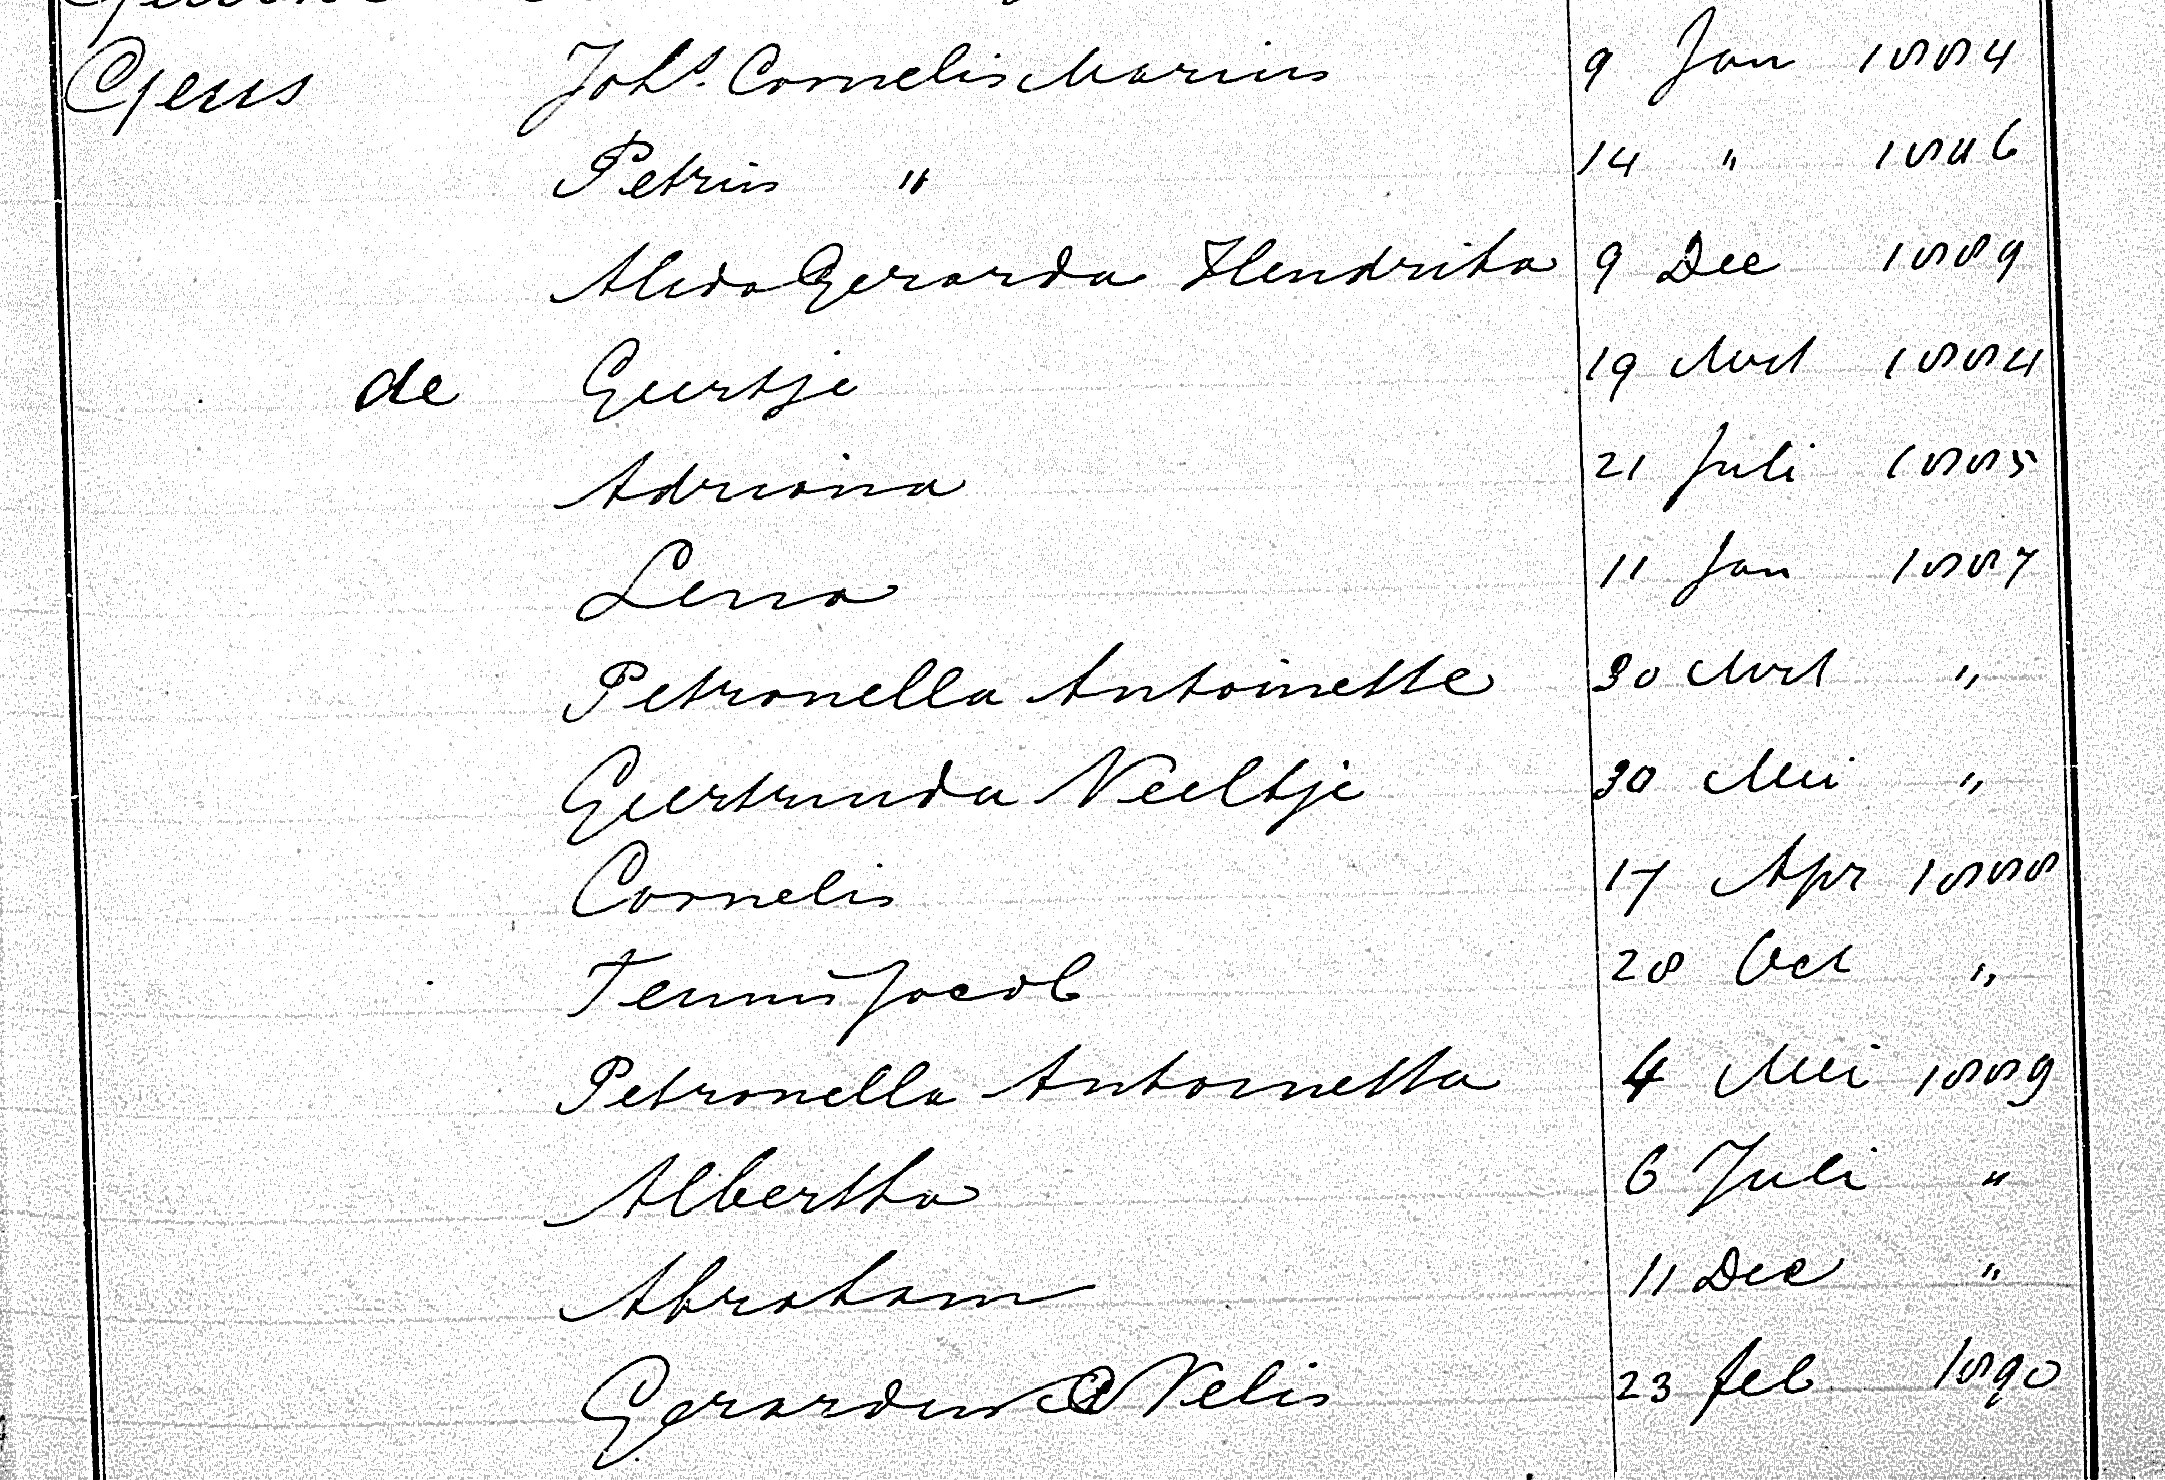 Geus Johs. Cornelis Marius 9 Jan 1884
Petrus " 14 " 1886
Alida Gerarda Hendrika 9 Dec 1889
de Geertje 19 Mrt 1884
Adriana 21 Juli 1885
Lena 11 Jan 1887
Petronella Antoinette 30 Mrt "
Geertruida Neeltje 30 Mei "
Cornelis 17 Apr 1888
Teunis Jacob 28 Oct "
Petronella Antoinetta 4 Mei 1889
Albertha 6 Juli "
Abraham 11 Dec "
Gerardus Nelis 23 feb 1890